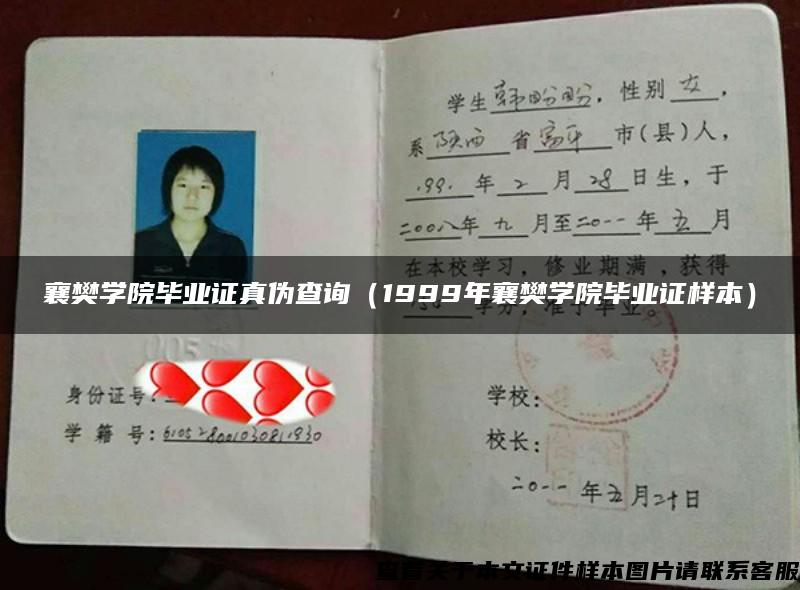 学生韩盼盼，性别女，
系陕西省富平市(县)人，
1991年2月28日生，于
二00八年九月至二0一一年五月
在本校学习，修业期满，获得
学分，准予毕业。
襄樊学院毕业证真伪查询（1999年襄樊学院毕业证样本）
身份证号：
学籍号：610528001030811930
学校：
校长：
二0一一年五月二十日
查看关于本文证件样本图片请联系客服